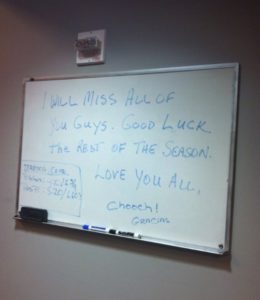 I WILL MISS ALL OF
YOU GUYS. GOOD LUCK
THE REST OF THE SEASON.
LOVE YOU ALL,
Chooch!
GRACIAS